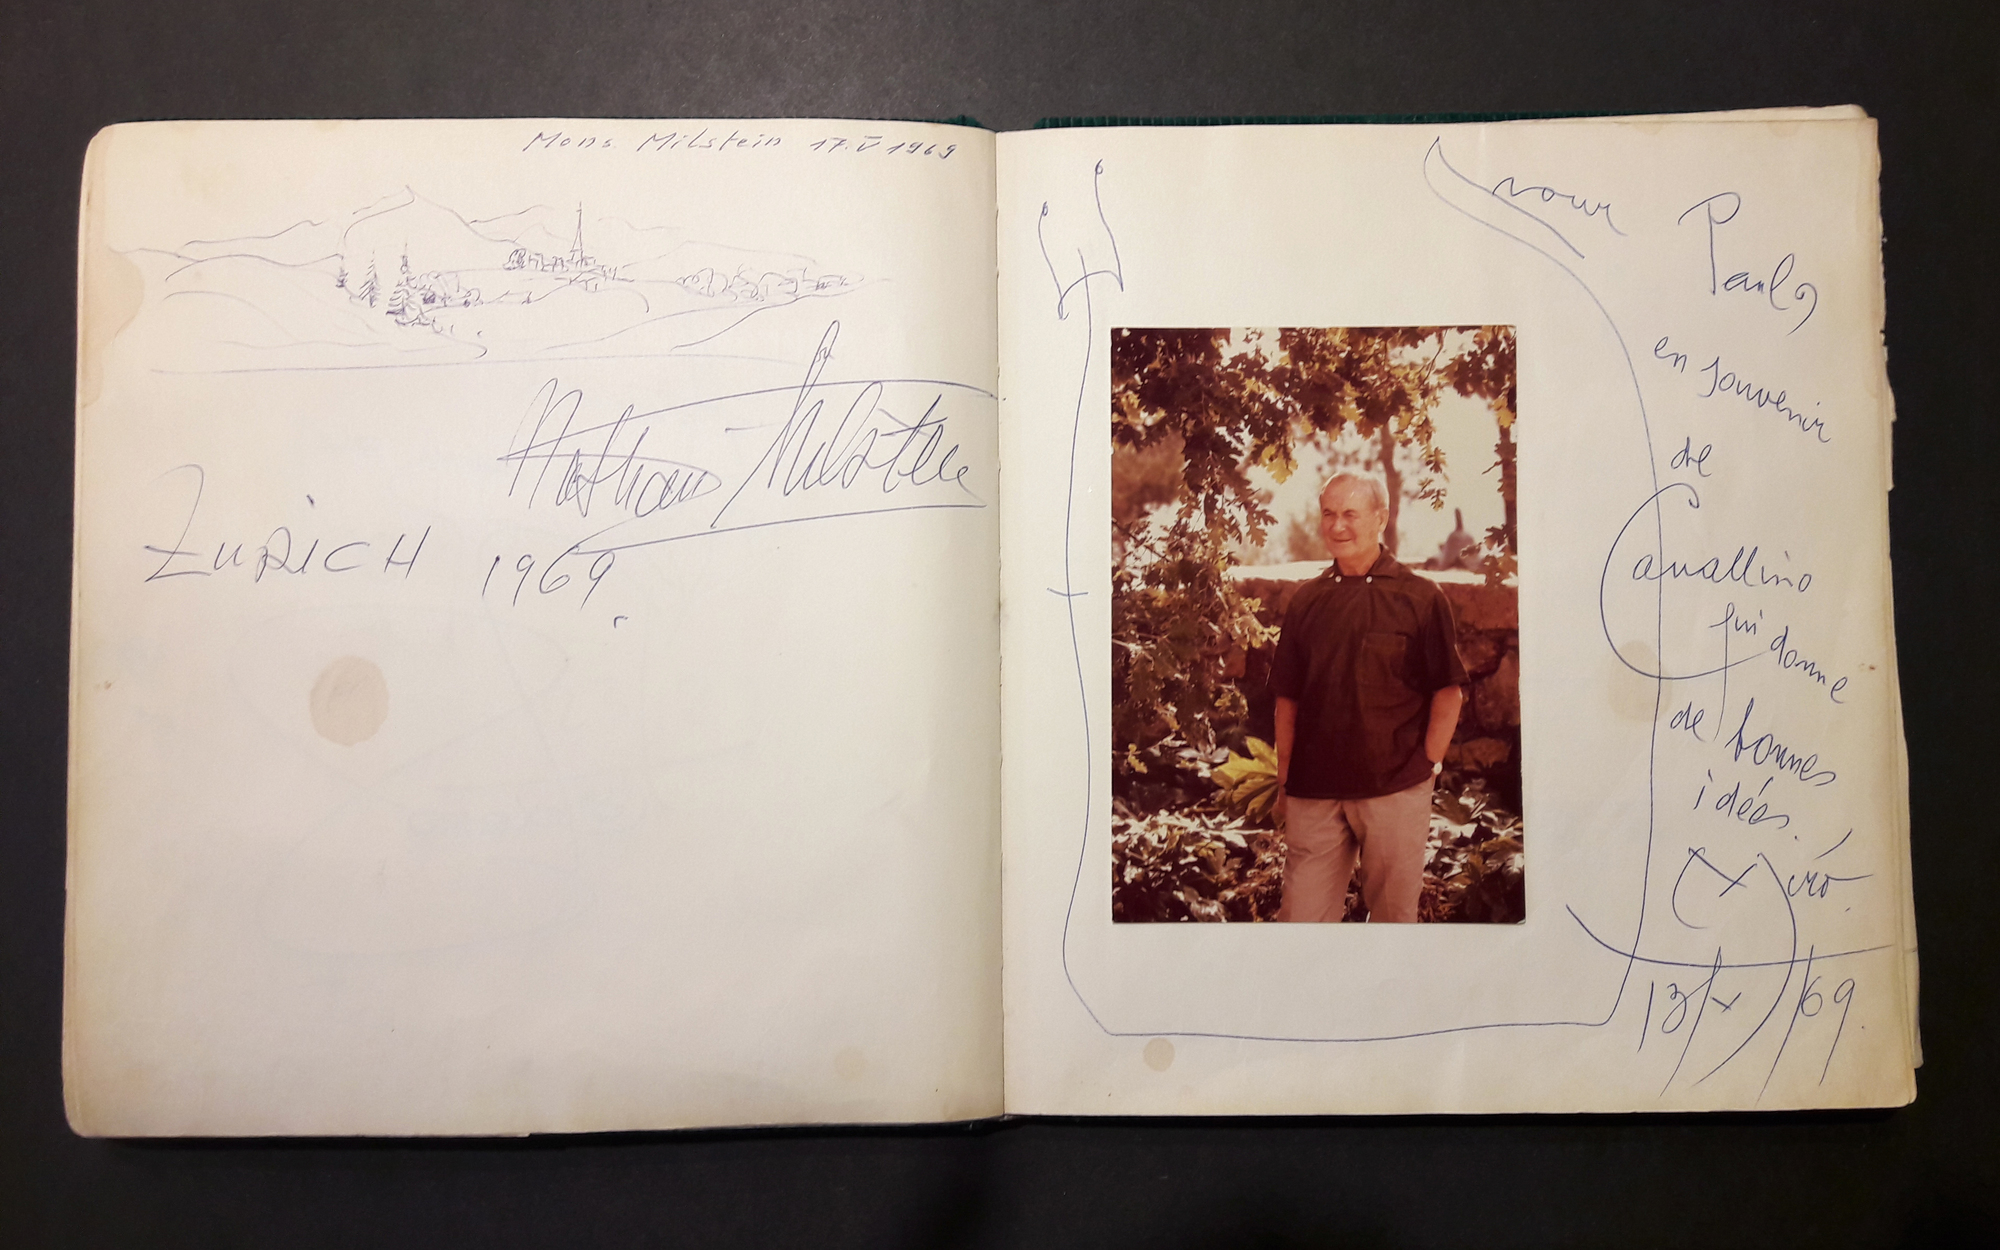 Mons. Milstein 17.V 1969
Nathan Milstein
ZURiCH 1969
pour Paul
en souvenir
de
Cavallino
qui donne
de bonnes
idées.
Miró.
13/X/69.